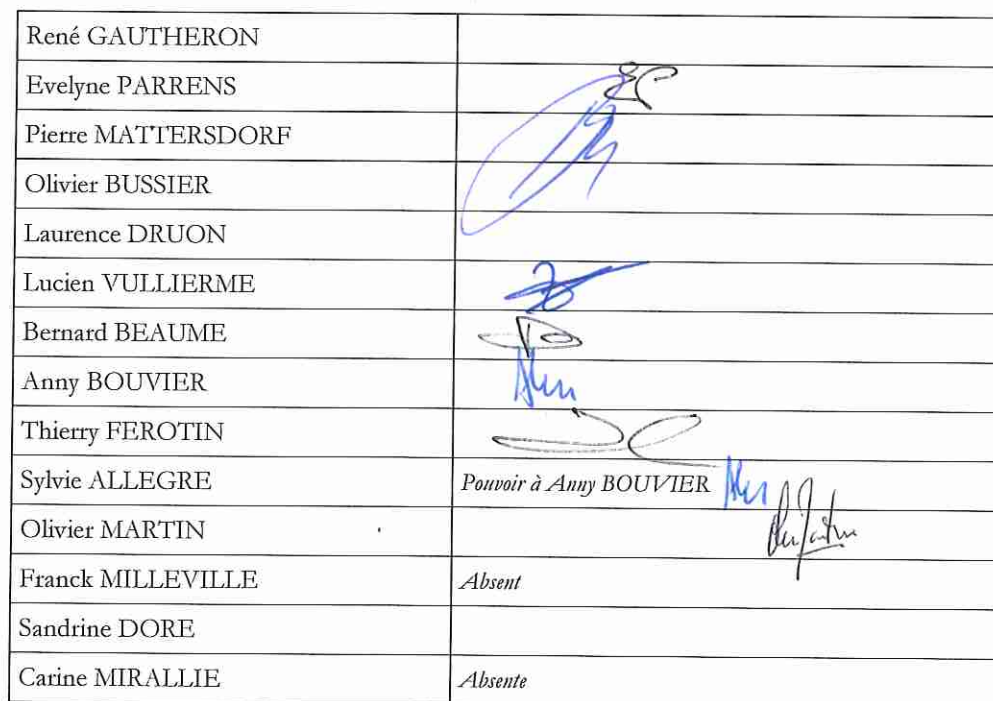 René GAUTHERON
Evelyne PARRENS
Pierre MATTERSDORF
Olivier BUSSIER
Laurence DRUON
Lucien VULLIERME
Bernard BEAUME
Anny BOUVIER
Thierry FEROTIN
Sylvie ALLEGRE Pouvoir à Anny BOUVIER
Olivier MARTIN
Franck MILLEVILLE Absent
Sandrine DORE
Carine MIRALLIE Absente